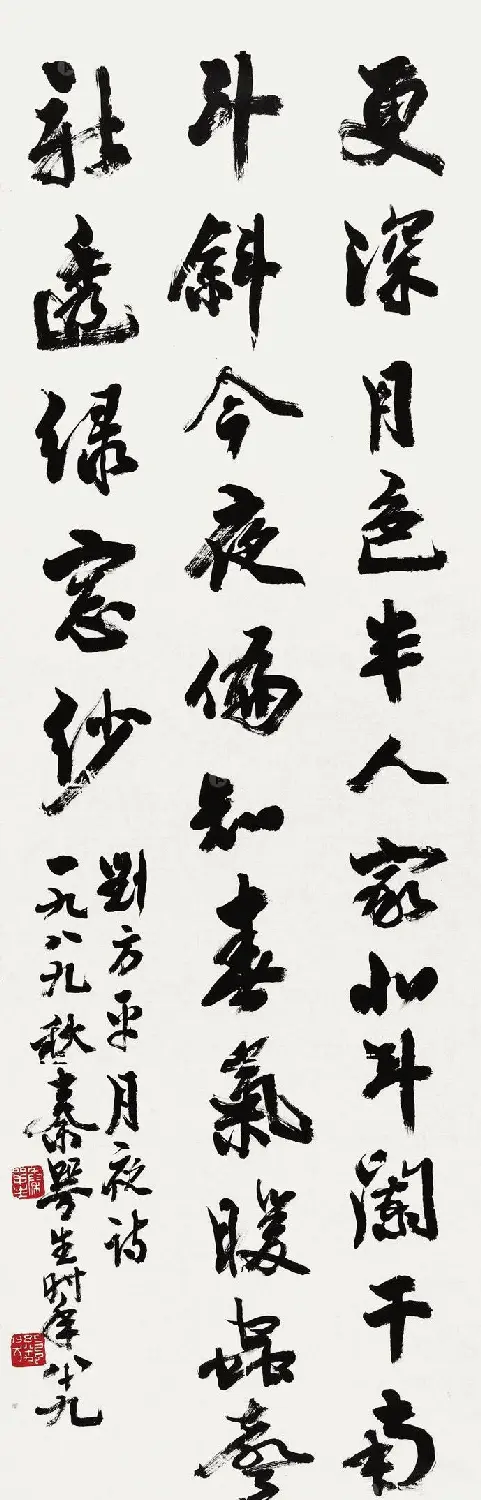 更深月色半人家北斗闌干南
斗斜今夜偏知春氣暖蟲聲
新透绿窓纱
劉方平月夜诗
一九八九秋秦咢生时年八十九